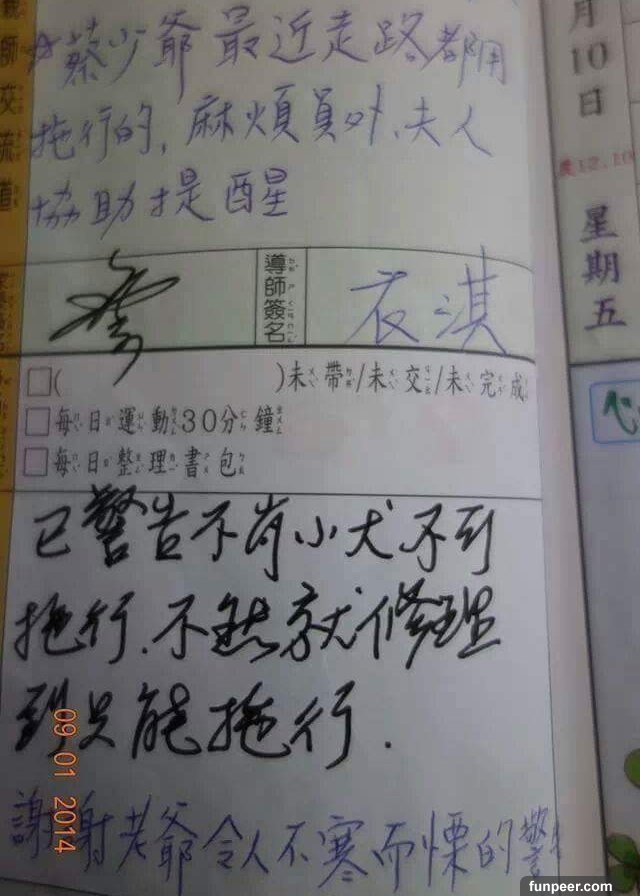 ☆蔡少爺最近走路都用
拖行的，麻煩員外、夫人
協助提醒
師交流道
導師簽名
衣淇
□( )未帶/未交/未完成
□每日運動30分鐘
□每日整理書包
已警告不肖小犬不到
拖行.不然就修理
到只能拖行.
謝謝老爺令人不寒而慄的警
月10日
農12.10
星期五
09 01 2014
funpeer.com